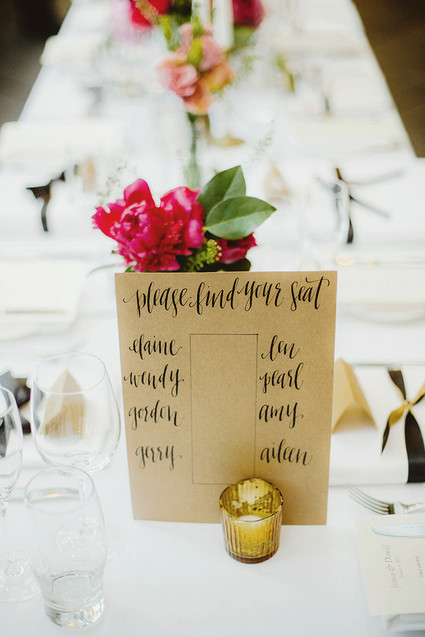 please find your seat
elaine len
wendy pearl
gordon amy
gerry aileen